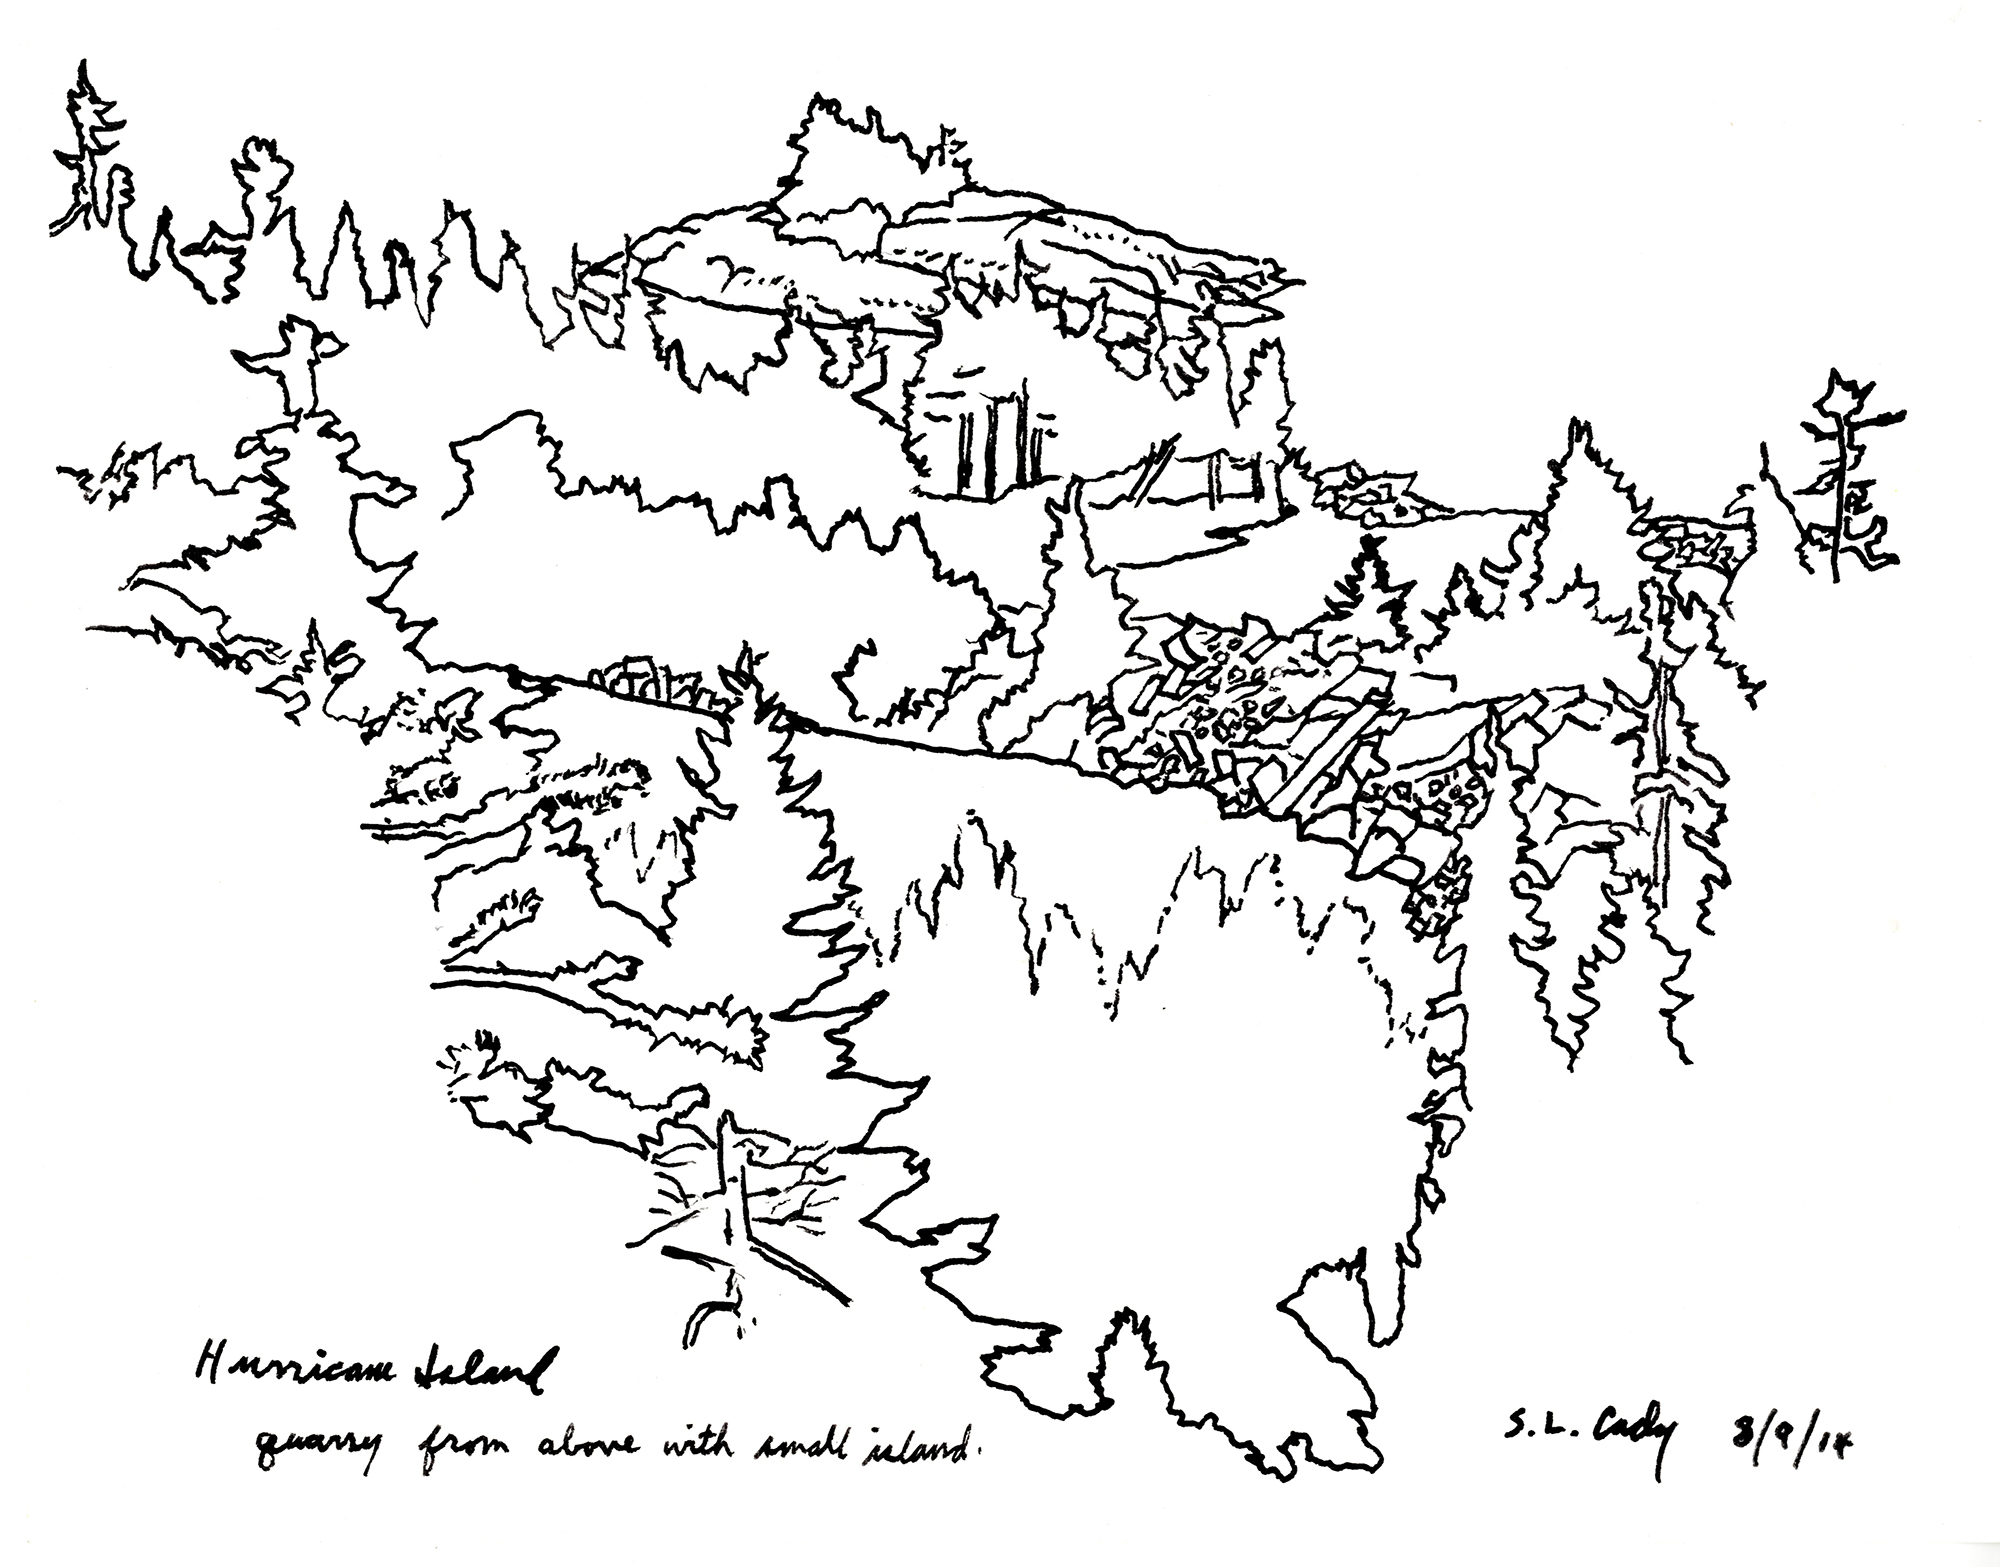 Hurricane Island
quarry from above with small island.
S. L. Cady 8/9/14